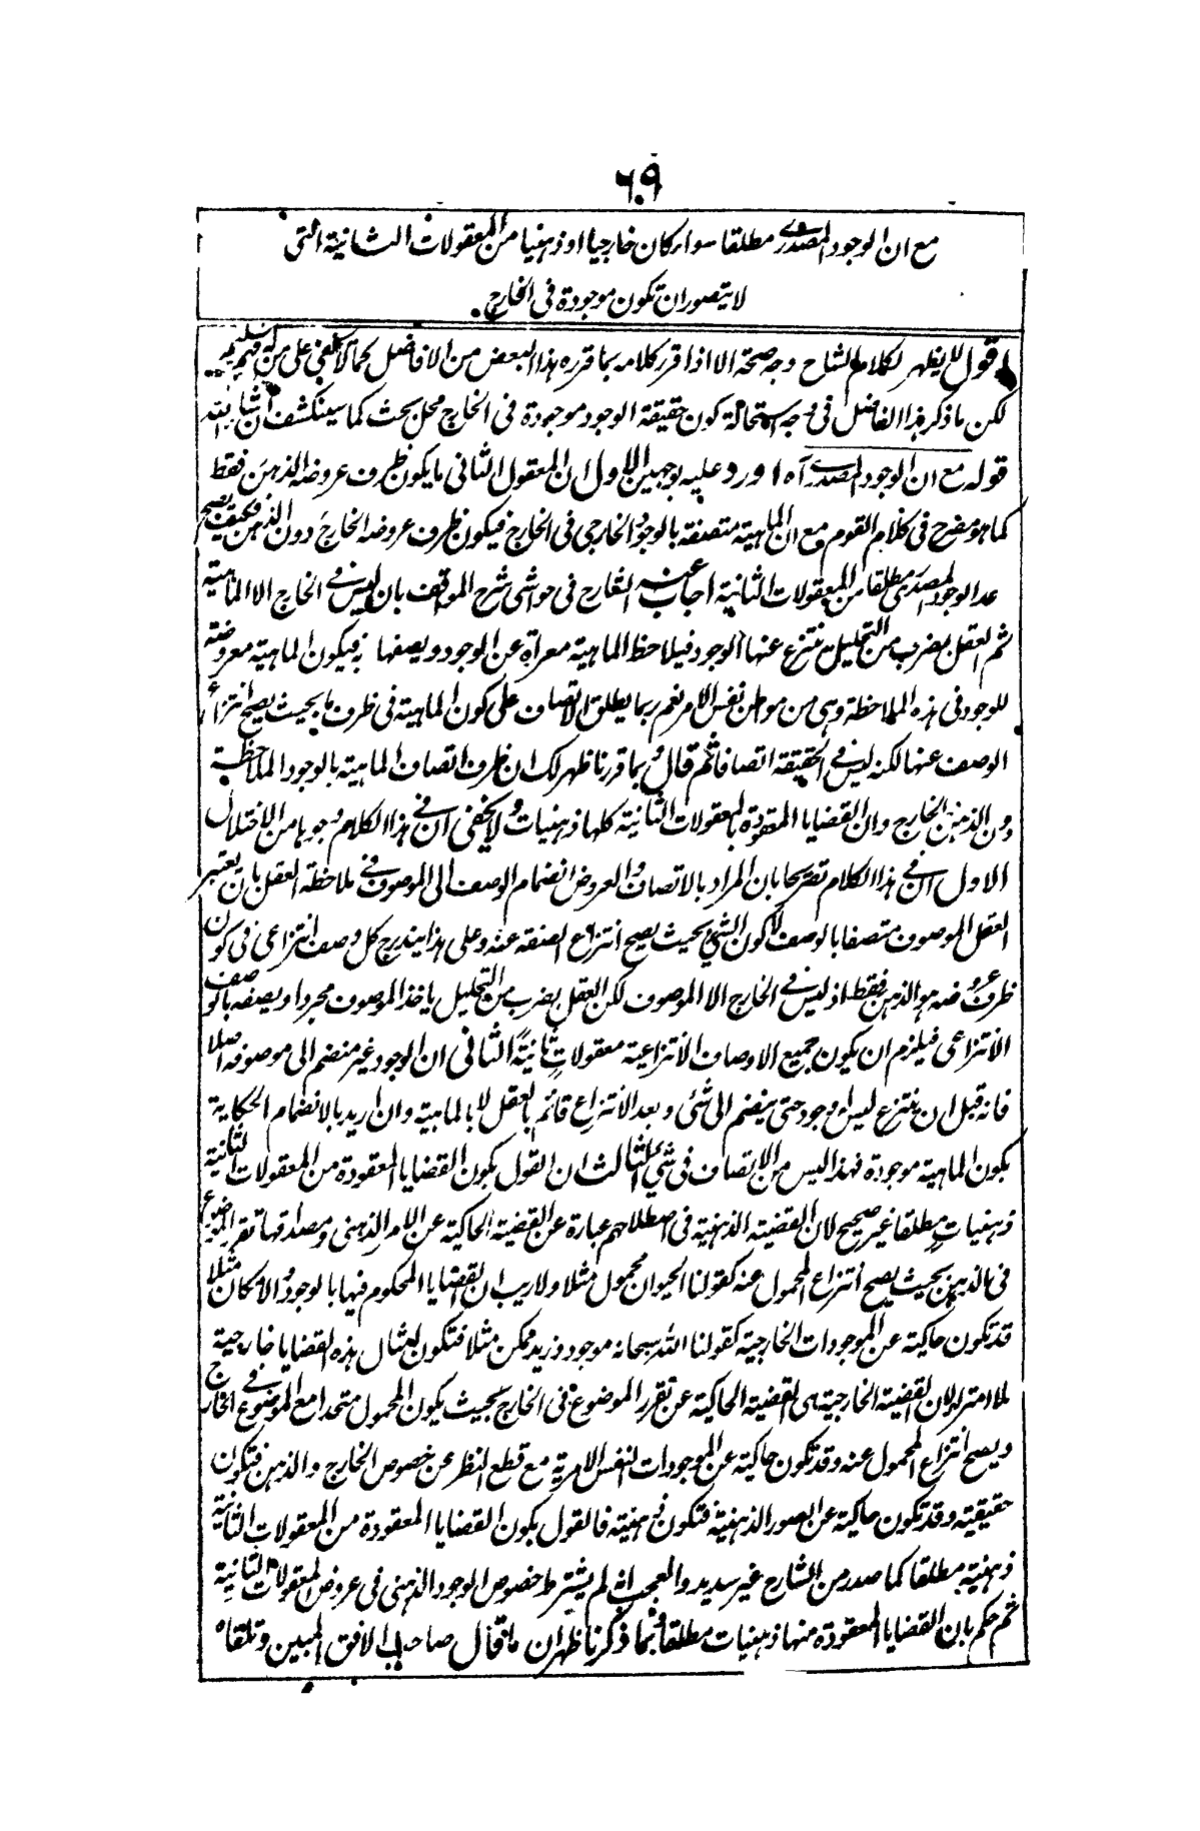 ٦٠٩
مع ان الوجود المصدري مطلقا سواء كان خارجيا او ذهنيا من المعقولات الثانية التى
لا يتصور ان تكون موجودة فى الخارج.
اقول لا يظهر لكلام الشارح وجه صحة الا اذا قرر كلامه بما قرره هذا البعض من الافاضل كما لا يخفى على من له فهم سليم
لكن ما ذكر هذا الفاضل فى وجه استحالة كون حقيقة الوجود موجودة فى الخارج محل بحث كما سينكشف ان شاء الله
قوله مع ان الوجود المصدري آه اورد عليه بوجهين الاول ان المعقول الثانى ما يكون ظرف عروضه الذهن فقط
كما هو مصرح فى كلام القوم مع ان الماهية متصفة بالوجود الخارجى فى الخارج فيكون ظرف عروضه الخارج دون الذهن فكيف يصح
عد الوجود المصدرى مطلقا من المعقولات الثانية اجاب عنه الشارح فى حواشى شرح المواقف بان ليس فى الخارج الا الماهية
ثم العقل بضرب من التحليل ينتزع عنها الوجود فيلاحظ الماهية معراة عن الوجود ويصفها به فيكون الماهية معروضة
للوجود فى هذه الملاحظة وهى من مواطن نفس الامر نعم ربما يطلق الاتصاف على كون الماهية فى ظرف ما بحيث يصح انتزاع
الوصف عنها لكنه ليس فى الحقيقة اتصافا ثم قال وبما قررنا ظهر لك ان ظرف اتصاف الماهية بالوجود الملاحظة
دون الذهن والخارج وان القضايا المعقودة بالمعقولات الثانية كلها ذهنيات ولا يخفى ان فى هذا الكلام وجوها من الاختلال
الاول ان فى هذا الكلام تصريحا بان المراد بالاتصاف والعروض انضمام الوصف الى الموصوف فى ملاحظة العقل بان يعتبر
العقل الموصوف متصفا بالوصف لا كون الشئ بحيث يصح انتزاع الصفة عنه وعلى هذا يندرج كل وصف انتزاعى فى كون
ظرف عروضه هو الذهن فقط اذ ليس فى الخارج الا الموصوف لكن العقل بضرب من التحليل ياخذ الموصوف مجردا ويصفه بالوصف
الانتزاعى فيلزم ان يكون جميع الاوصاف الانتزاعية معقولات ثانية الثانى ان الوجود غير منضم الى موصوفه اصلا
فانه قبل ان ينتزع ليس له وجود حتى ينضم الى شئ وبعد الانتزاع قائم بالعقل لا بالماهية وان اريد بالانضمام الحكاية
بكون الماهية موجودة فهذا ليس من الاتصاف فى شئ الثالث ان القول بكون القضايا المعقودة من المعقولات الثانية
ذهنيات مطلقا غير صحيح لان القضية الذهنية فى اصطلاحهم عبارة عن القضية الحاكية عن الامر الذهنى ومصداقها تقرر الموضوع
فى الذهن بحيث يصح انتزاع المحمول عنه كقولنا الحيوان محمول مثلا ولا ريب ان القضايا المحكوم فيها بالوجود والامكان مثلا
قد تكون حاكية عن الموجودات الخارجية كقولنا الله سبحانه موجود وزيد ممكن مثلا فتكون امثال هذه القضايا خارجية
بلا امتراء لان القضية الخارجية هى القضية الحاكية عن تقرر الموضوع فى الخارج بحيث يكون المحمول متحدا مع الموضوع فى الخارج
ويصح انتزاع المحمول عنه وقد تكون حاكية عن الموجودات النفس الامرية مع قطع النظر عن خصوص الخارج والذهن فتكون
حقيقية وقد تكون حاكية عن الصور الذهنية فتكون ذهنية فالقول بكون القضايا المعقودة من المعقولات الثانية
ذهنية مطلقا كما صدر من الشارح غير سديد والعجب انه لم يشترط خصوص الوجود الذهنى فى عروض المعقولات الثانية
ثم حكم بان القضايا المعقودة منها ذهنيات مطلقا وبما ذكرنا ظهر ان ما قال صاحب الافق المبين وتلقاه